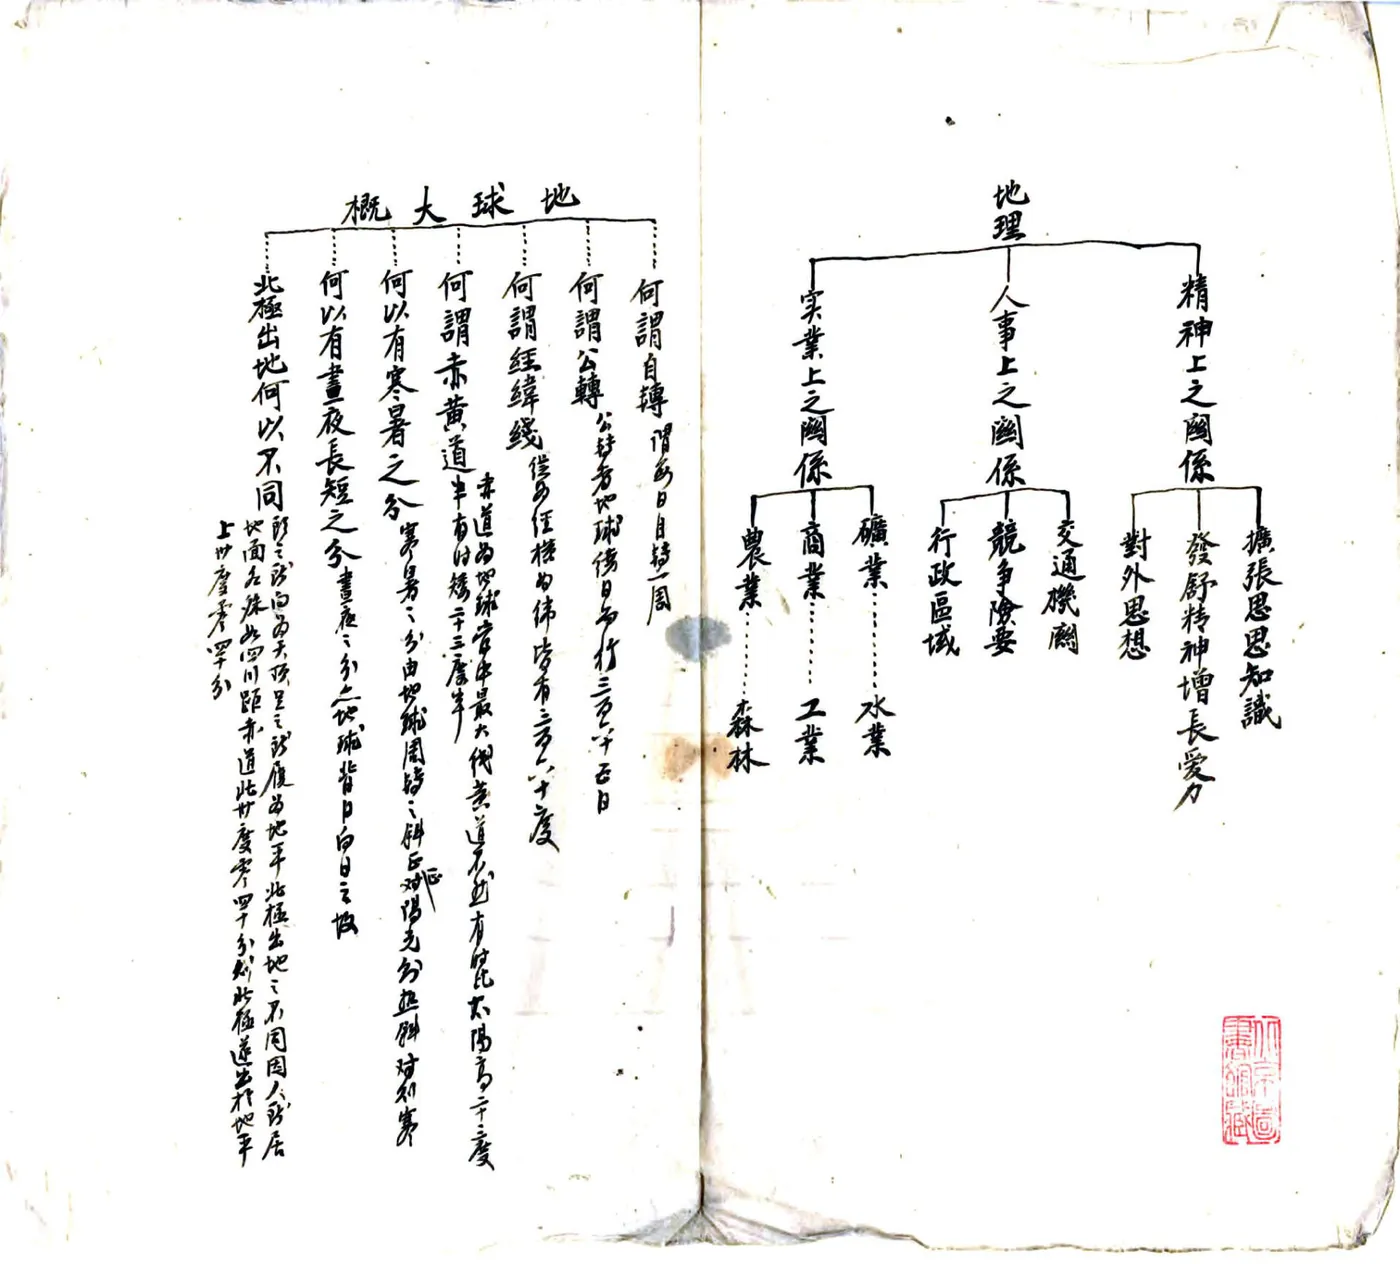 地理
精神上之關係
擴張思思知識
發舒精神增長愛力
對外思想
人事上之關係
交通機關
競爭險要
行政區域
实業上之關係
礦業 水業
商業 工業
農業 森林
地球大概
何謂自轉 謂每日自轉一周
何謂公轉 公轉者地球繞日而行三百六十五日
何謂經緯綫 從為經橫為緯皆有三百六十度
何謂赤黃道 赤道為地球當中最大綫黃道不然有時比太陽高二十三度
半有時矮二十三度半
何以有寒暑之分 寒暑之分由地球周轉之斜正正对陽光則热斜对則寒
何以有晝夜長短之分 晝夜之分亦地球背日向日之故
北極出地何以不同 頭之所向為天頂足之所履為地平北極出地之不同因人所居
地面各殊如四川距赤道北卅度零四十分則北極遂出於地平
上卅度零四十分
北京圖
書館藏